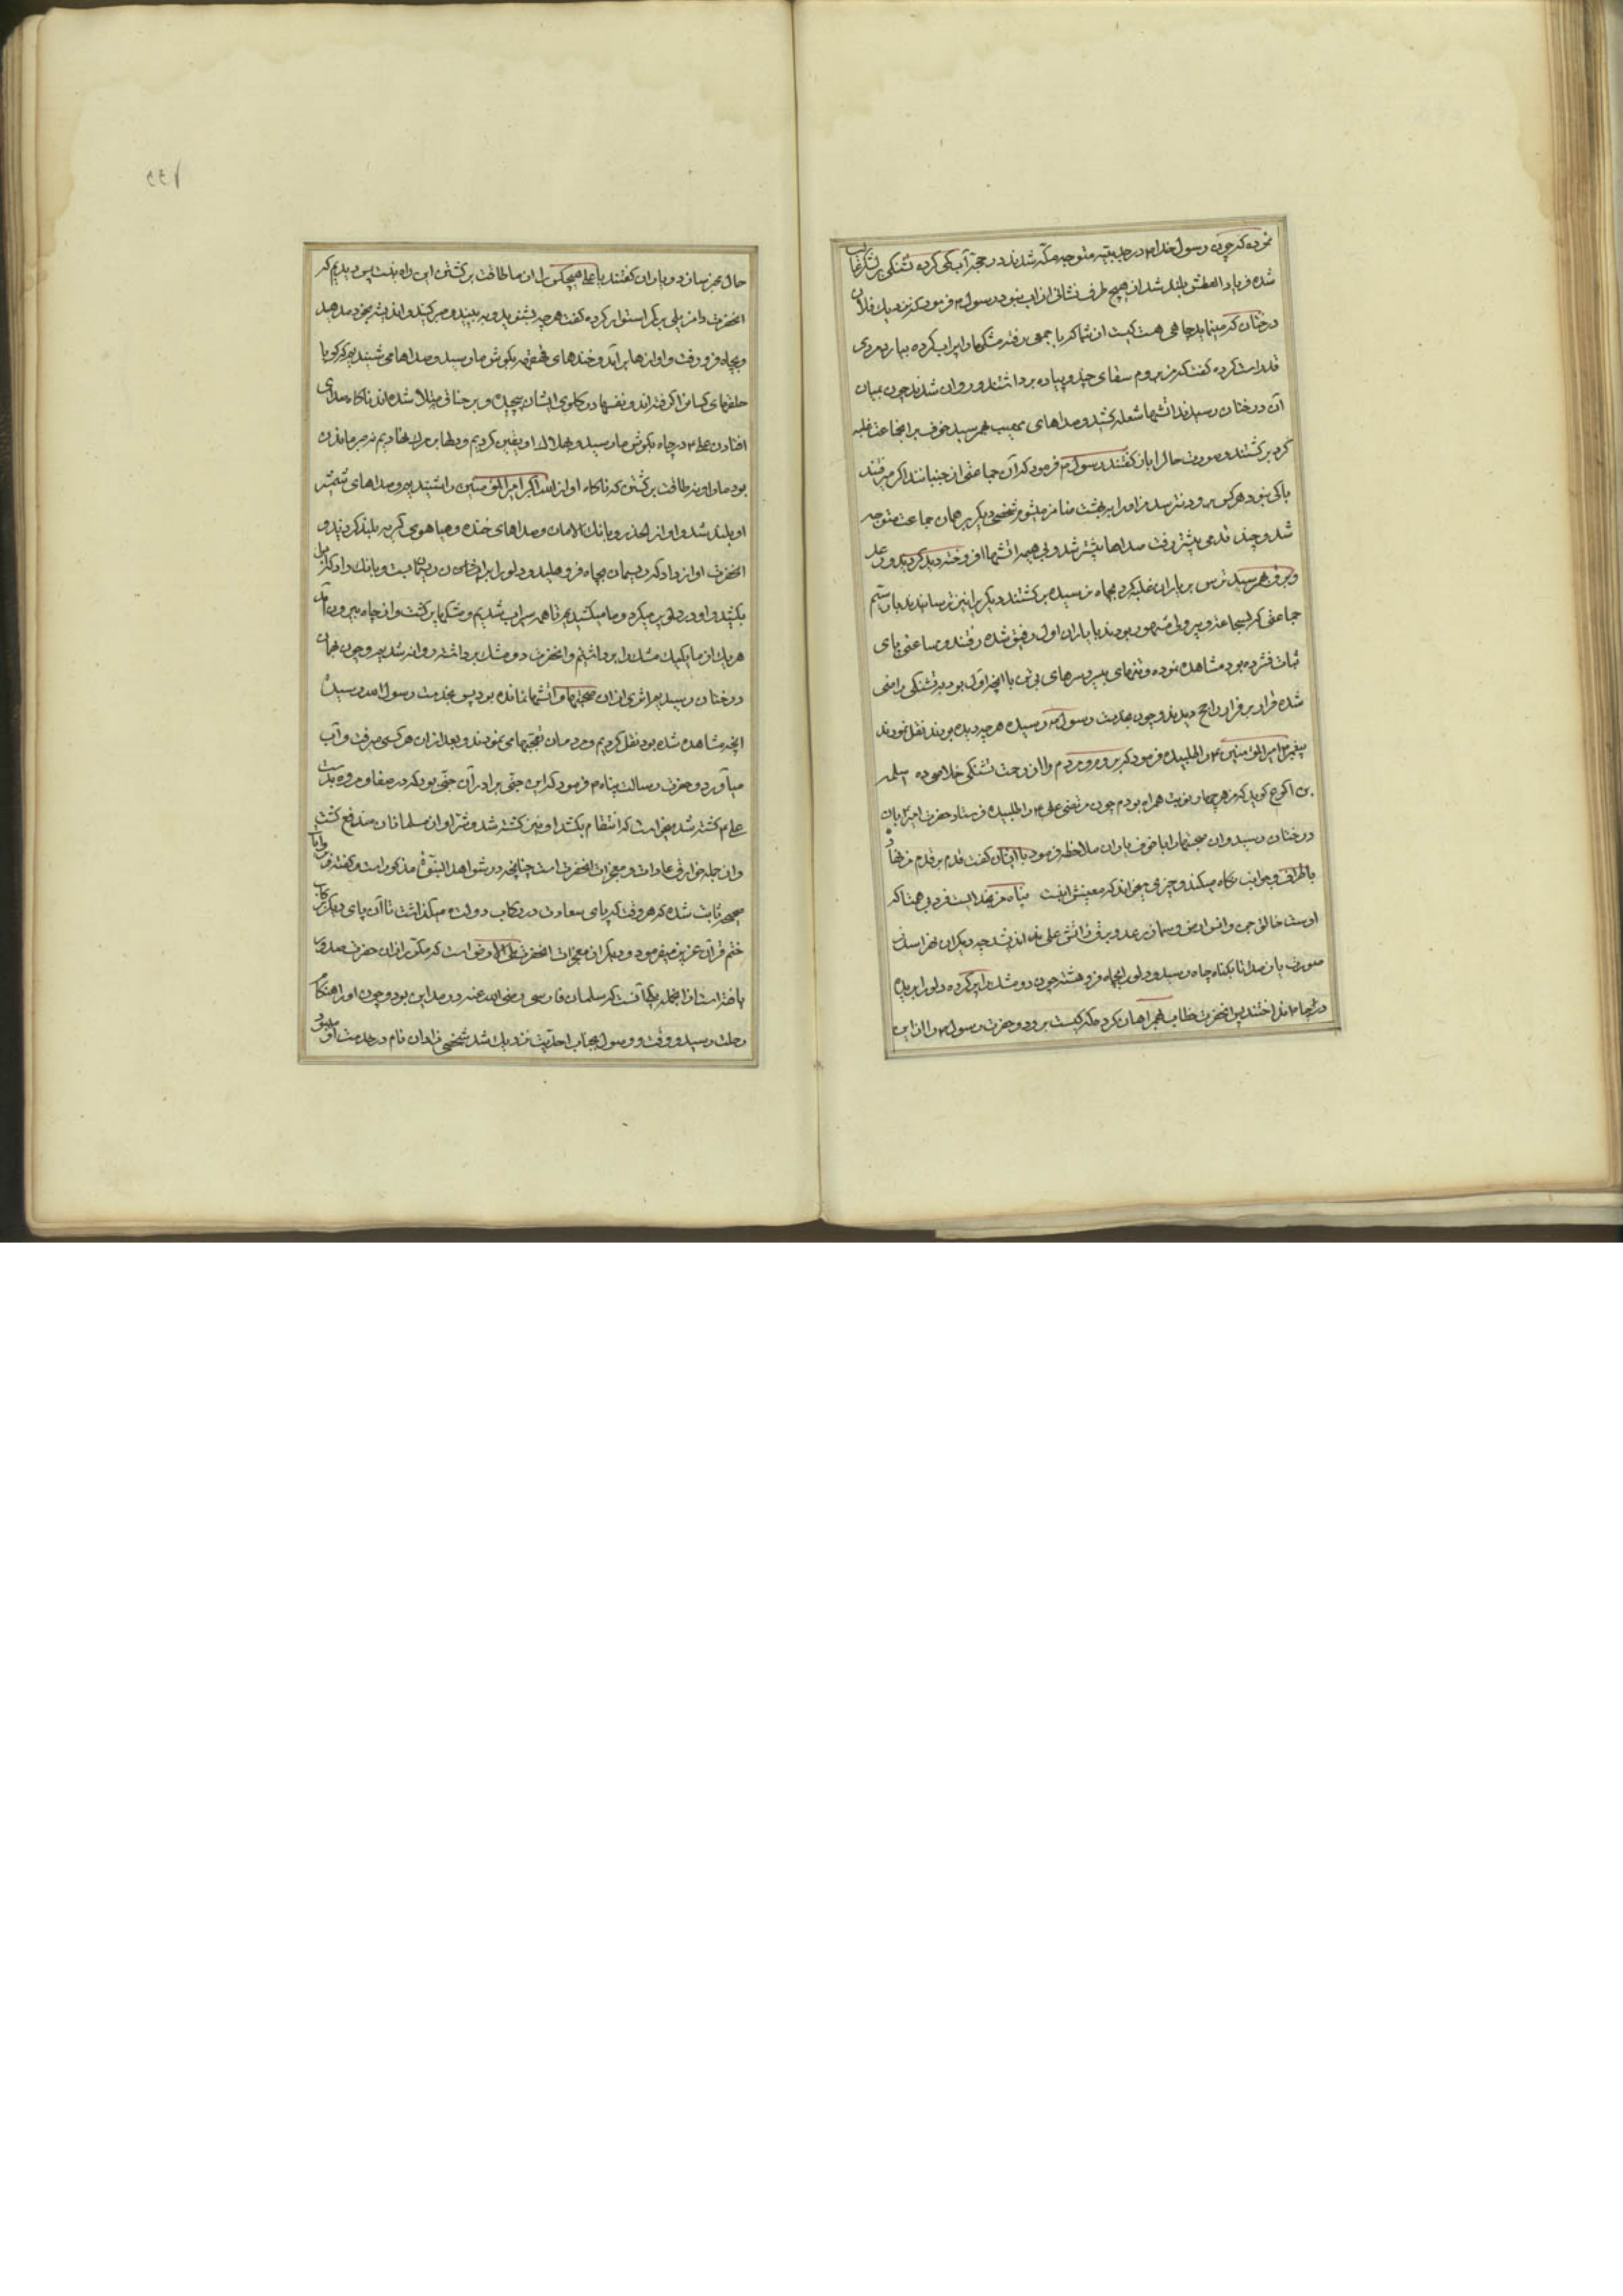 نموده که چون رسول خدا م در حدیبیه متوجه مکه شدند در حجفه آب کمی کرده تشنگی بر لشکر غالب
شده فریاد العطش بلند شد از هیچ طرف نشانی از آب نبود رسول م فرمود که نزدیک فلان
درختان که مینماید چاهی هست کیست از شما که با جمعی رفته مشکها را پر آب کرده بیارد مردی
قد راست کرده گفت که من بروم سقای چند و پیاده برداشتند و روان شدند چون بمیان
آن درختان رسیدند آتشها شعله کشید و صداهای مهیب بهم رسید خوف بر آنجماعت غلبه
کرد برگشتند و صورت حال را بیان کردند رسول م فرمود که آن جماعتی از جنیانند اگر میرفتند
باکی نبود هر کس برود و نترسد من او را به بهشت ضامن میشوم شخصی دیگر بر همان جماعت متوجه
شد و چند قدمی پیشتر رفت صداها بیشتر شد و بی هیمه آتشها افروخته دید گردید و رعد
و برق بهم رسید ترس بر یاران غلبه کرد بچاه نرسیده برگشتند و دیگر را نیز ترسانیدند بار سیم
جماعتی که بشجاعت و پر دلی مشهور بودند با یاران اول رفیق شده رفتند و ساعتی پای
ثبات فشرده بود مشاهده نموده و تنهای بی سر و سرهای بی تن با آنچه اول بود بر تشنگی راضی
شده فرار بر قرار راجح دیدند و چون بخدمت رسول م رسیده هر چه دیده بودند نقل نمودند
پیغمبر م امیر المؤمنین ع را طلبیده فرمود که برو و مردم را از زحمت تشنگی خلاص ده سلمه
بن اکوع گوید که من هر چهار نوبت همراه بودم چون مرتضی علی ع را طلبیده فرستاد حضرت امیر ع بان
درختان رسید و آن صحبتها را با خوف یاران ملاحظه فرمود باایشان گفت قدم بر قدم من نهاده
باطراف و جوانب نگاه میکنند و چیزی میخواند که معنیش اینست پناه من بخداییست فرد بی همتا که
اوست خالق جن و انس از جن و سماز رعد و برق و آتش علی نه اندیشد چه دیگران هراسند
بدین صدا تا بکناه چاه رسید و دلو را بچاه فرو هشته چون دو مشک را پر کرده دلو را بریده
در چاه انداختند پس آنحضرت خطاب بهمراهان کرد که کیست برود و حضرت رسول م را از این
حال خبر رساند و یاران گفتند یا علی هیچکس را از ما طاقت برگشتن این راه نیست پس دیدیم که
آنحضرت دامن یلی بر کمر استوار کرده گفت هر چه بشنوید و ببینید و صبر کنید و اندیشه بخود مدهید
و بچاه فرو رفت و آوازها بر آمد و خندهای قهقهه بگوش ما رسید و صداها می شنیدیم که گویا
حلقهای کسانرا گرفته اند و نفسها در گلوی ایشان پیچیده و بر خناقی مبتلا شده اند ناگاه صدای
افتادن علی ع در چاه بگوش ما رسید و بهلاک او یقین کردیم و دلها بر مرگ نهادیم نه صبر ماندن
بود ما را و نه طاقت برگشتن که ناگاه آواز الله اکبر امیر المؤمنین را شنیدیم و صداهای شمشیر
او بلند شد و آواز الحذر و بانک الامان و صداهای خنده و هیاهوی گریه بلند کردند و
آنحضرت آواز داد که ریسمان بچاه فرو هلید و دلو را برای شان در ریسمان بست و بانک داد که دلو را
بکشید و او دلو پر میکرد و ما میکشیدیم تا همه سیراب شدیم و مشکها پر گشت و از چاه بیرون آمد
هر یک از ما یکیک مشک را برداشتیم و آنحضرت دو مشک برداشته روانه شدیم و چون بمیان
درختان رسیدیم اثری از آن صحبتها و آتشها نمانده بود پس بخدمت رسول الله رسیده
آنچه مشاهده شده بود نقل کردیم و مردمان تعجبها می نمودند و بعد از آن هر کسی میرفت و آب
میآورد و حضرت رسالت پناه م فرمود که این جنی برادر آن جنی بود که در صفا و مروه بدست
علی م کشته شد میخواست که انتقام بکشد او نیز کشته شد و شر او از مسلمانان مندفع گشت
و از جمله خوارق عادات و معجزات آنحضرت است چنانچه در شواهد النبوة مذکور است و گفته و بروایات
صحیحه ثابت شده که هر وقت که پای سعادت در رکاب دولت میگذاشت تا آن پای دیگر برکاب
ختم قرآن عزیز میفرمود و دیگر از معجزات آنحضرت طی الارض است که مکرر از آن حضرت صدور
یافته است از آنجمله یکی آنست که سلمان فارسی رضی الله عنه در مداین بود و چون او را هنگام
رحلت رسید و وقت وصول بجناب احدیت نزدیک شد شخصی زاذان نام در خدمت او میبود